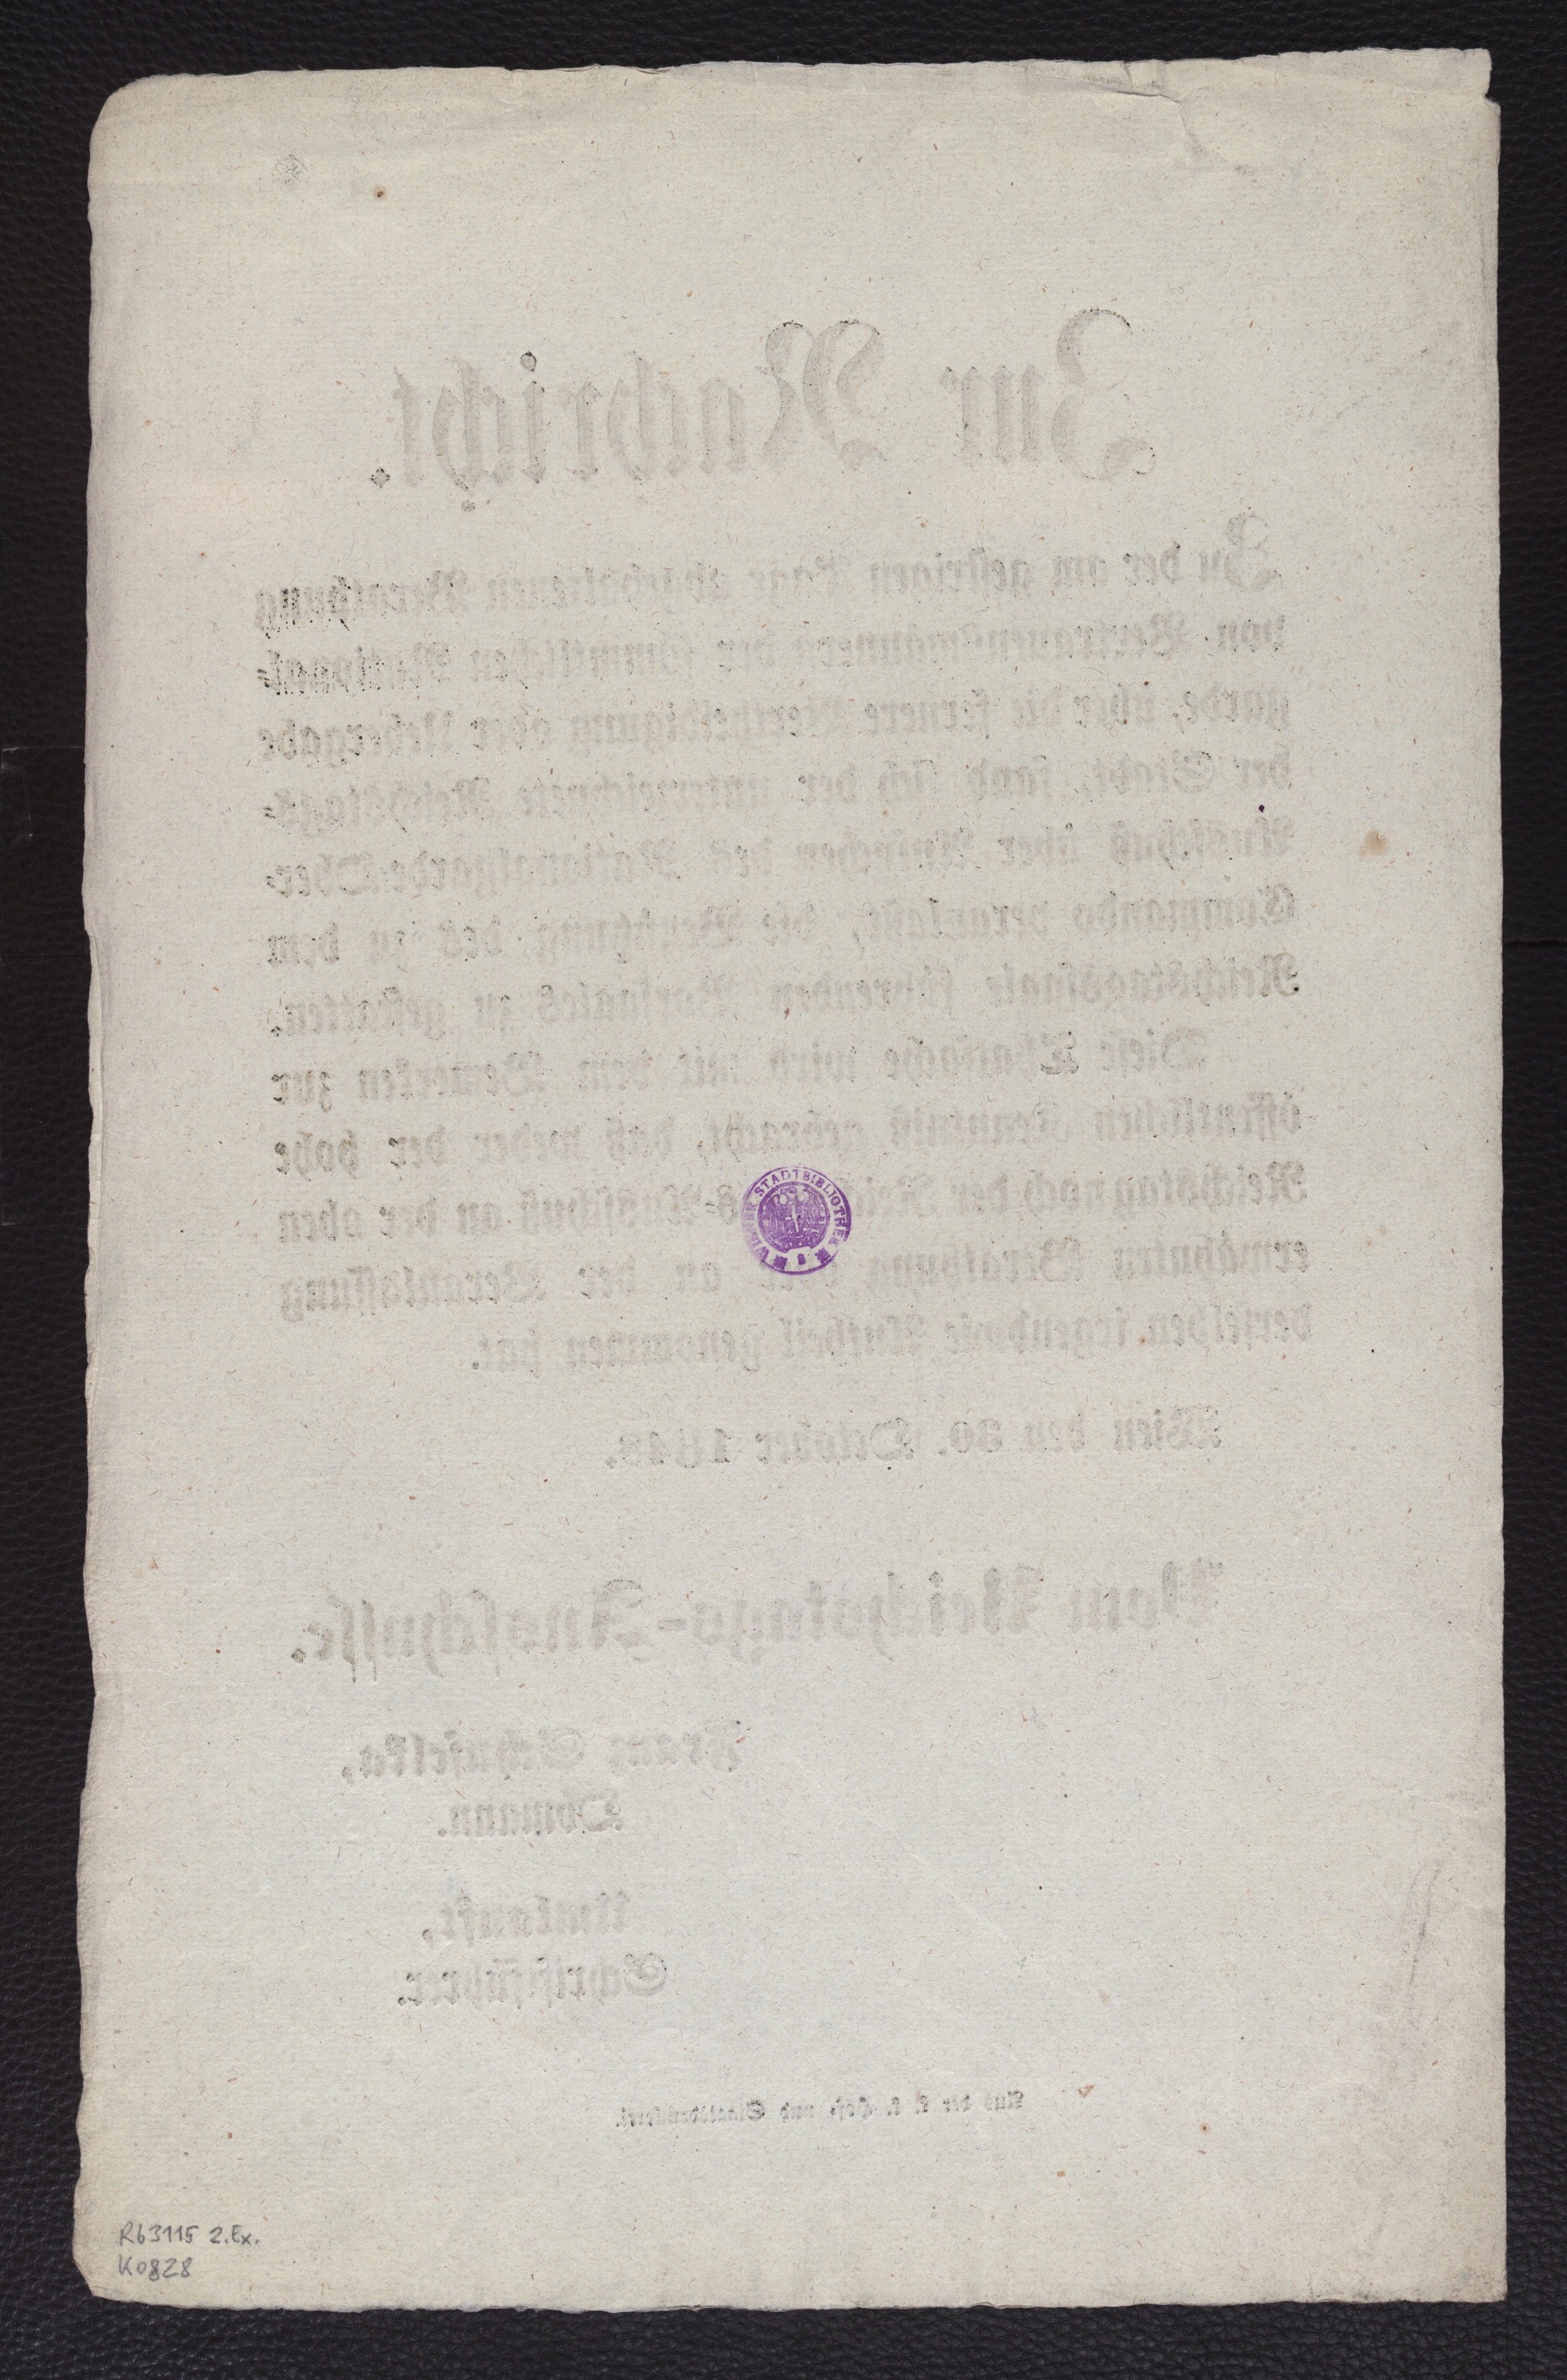 Zur Nachricht.
Zu der am gestrigen Tage abgehaltenen Berathung
von Vertrauensmänners der sämmtlichen National-
garde, über die fernere Vertheidigung oder Uebergabe
der Stadt, fand sich der unterzeichnete Reichstags-
Ausschuß über Ansuchen des Nationalgarde-Ober-
Commando veranlaßt, die Benützung des zu dem
Reichstagssaale führenden Vorsaales zu gestatten.
Diese Thatsache wird mit dem Bemerken zur
öffentlichen Kenntniß gebracht, daß weder der hohe
Reichstag noch der Reichstags-Ausschuß an der oben
erwähnten Berathung oder an der Veranlassung
derselben irgendwie Antheil genommen hat.
Wien den 30. October 1848.
Vom Reichstags-Ausschusse.
Franz Schuselka,
Obmann.
Umlauft,
Schriftführer.
Aus der k. k. Hof- und Staatsdruckerei.
WIENER STADTBIBLIOTHEK
R63115 2.Ex.
K0828